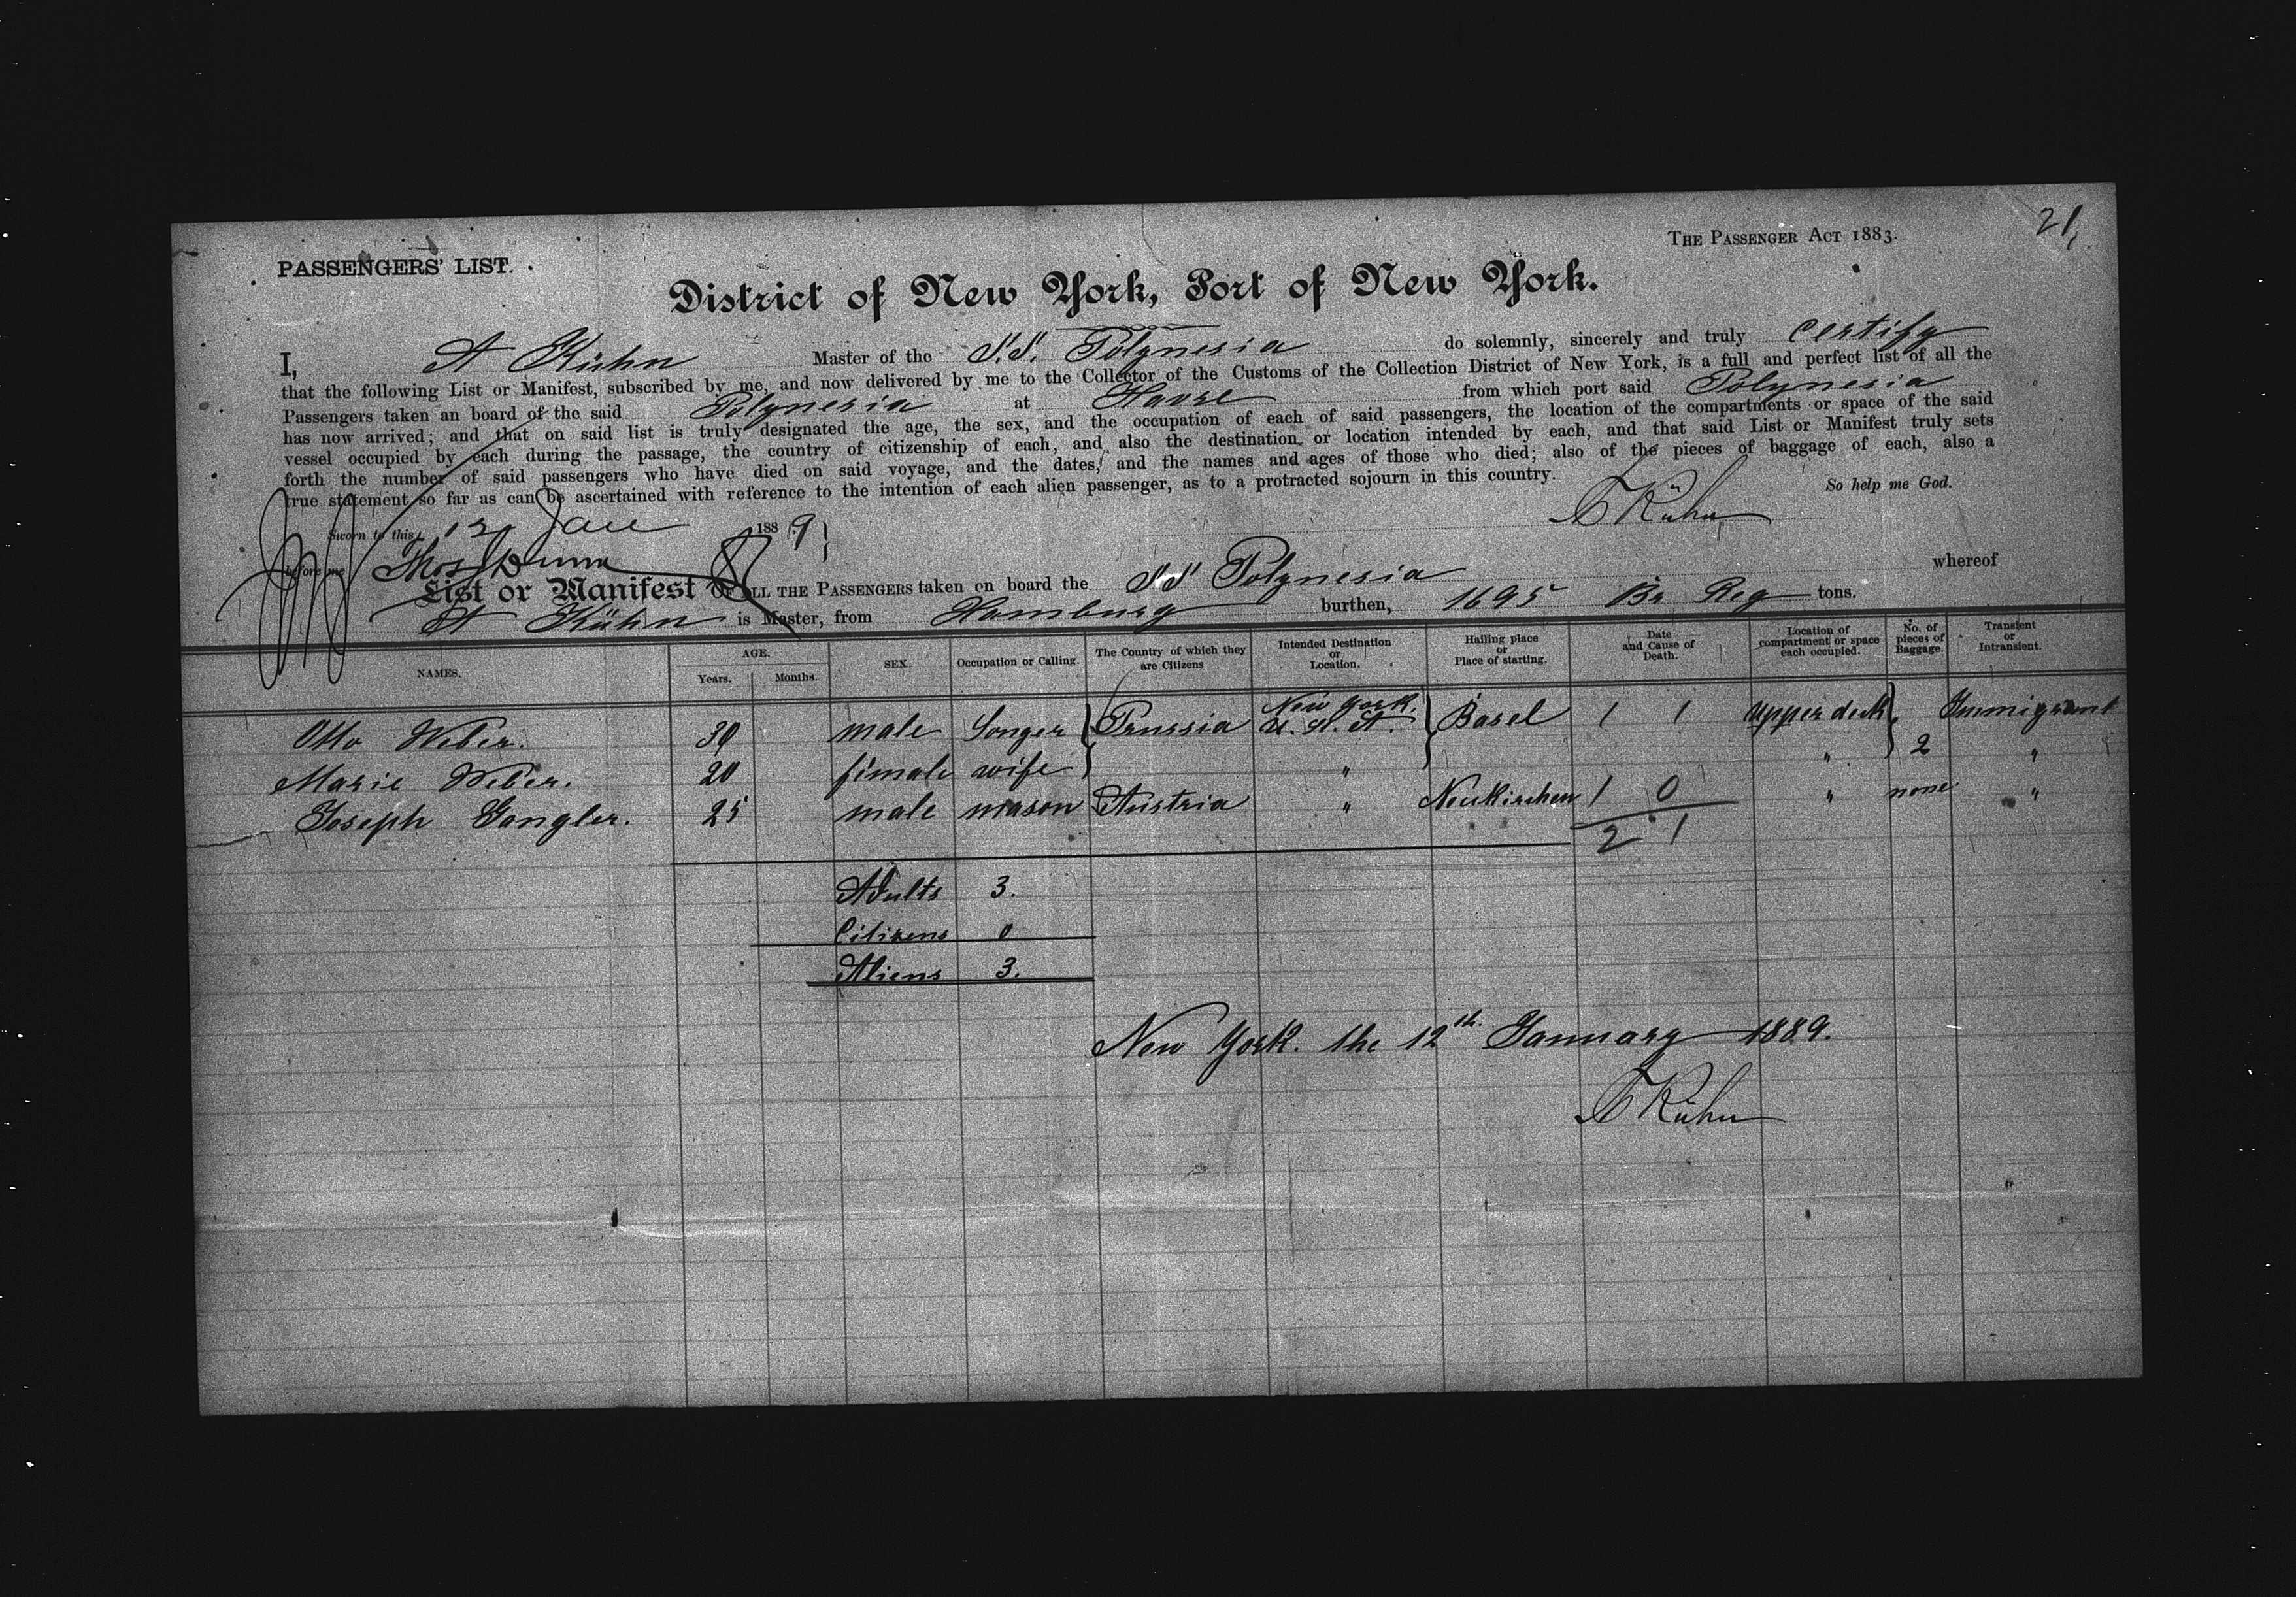 21.
THE PASSENGER ACT 1883.
PASSENGERS' LIST.
District of New York, Port of New York.
I, A Kühn Master of the S.S. Polynesia do solemnly, sincerely and truly certify
that the following List or Manifest, subscribed by me, and now delivered by me to the Collector of the Customs of the Collection District of New York, is a full and perfect list of all the
Passengers taken an board of the said Polynesia at Havre from which port said Polynesia
has now arrived; and that on said list is truly designated the age, the sex, and the occupation of each of said passengers, the location of the compartments or space of the said
vessel occupied by each during the passage, the country of citizenship of each, and also the destination or location intended by each, and that said List or Manifest truly sets
forth the number of said passengers who have died on said voyage, and the dates, and the names and ages of those who died; also of the pieces of baggage of each, also a
true statement so far as can be ascertained with reference to the intention of each alien passenger, as to a protracted sojourn in this country. So help me God.
A Kühn
Sworn to this 12 Jan 1889
before me Thos Dunn
List or Manifest OF ALL THE PASSENGERS taken on board the S.S. Polynesia whereof
A Kühn is Master, from Hamburg burthen, 1695 Br Reg tons.
NAMES. AGE. Years. Months. SEX. Occupation or Calling. The Country of which they are Citizens Intended Destination or Location. Hailing place or Place of starting. Date and Cause of Death. Location of compartment or space each occupied. No. of pieces of Baggage. Transient or Intransient.
Otto Weber. 30 male Songer Prussia New York. U.S.A. Basel 1 1 upper deck Immigrant
Marie Weber. 20 female wife " " 2 "
Joseph Gangler. 25 male mason Austria " Neukirchen 1 0 " none "
2 1
Adults 3.
Citizens 0
Aliens 3.
New York. the 12th January 1889.
A Kühn